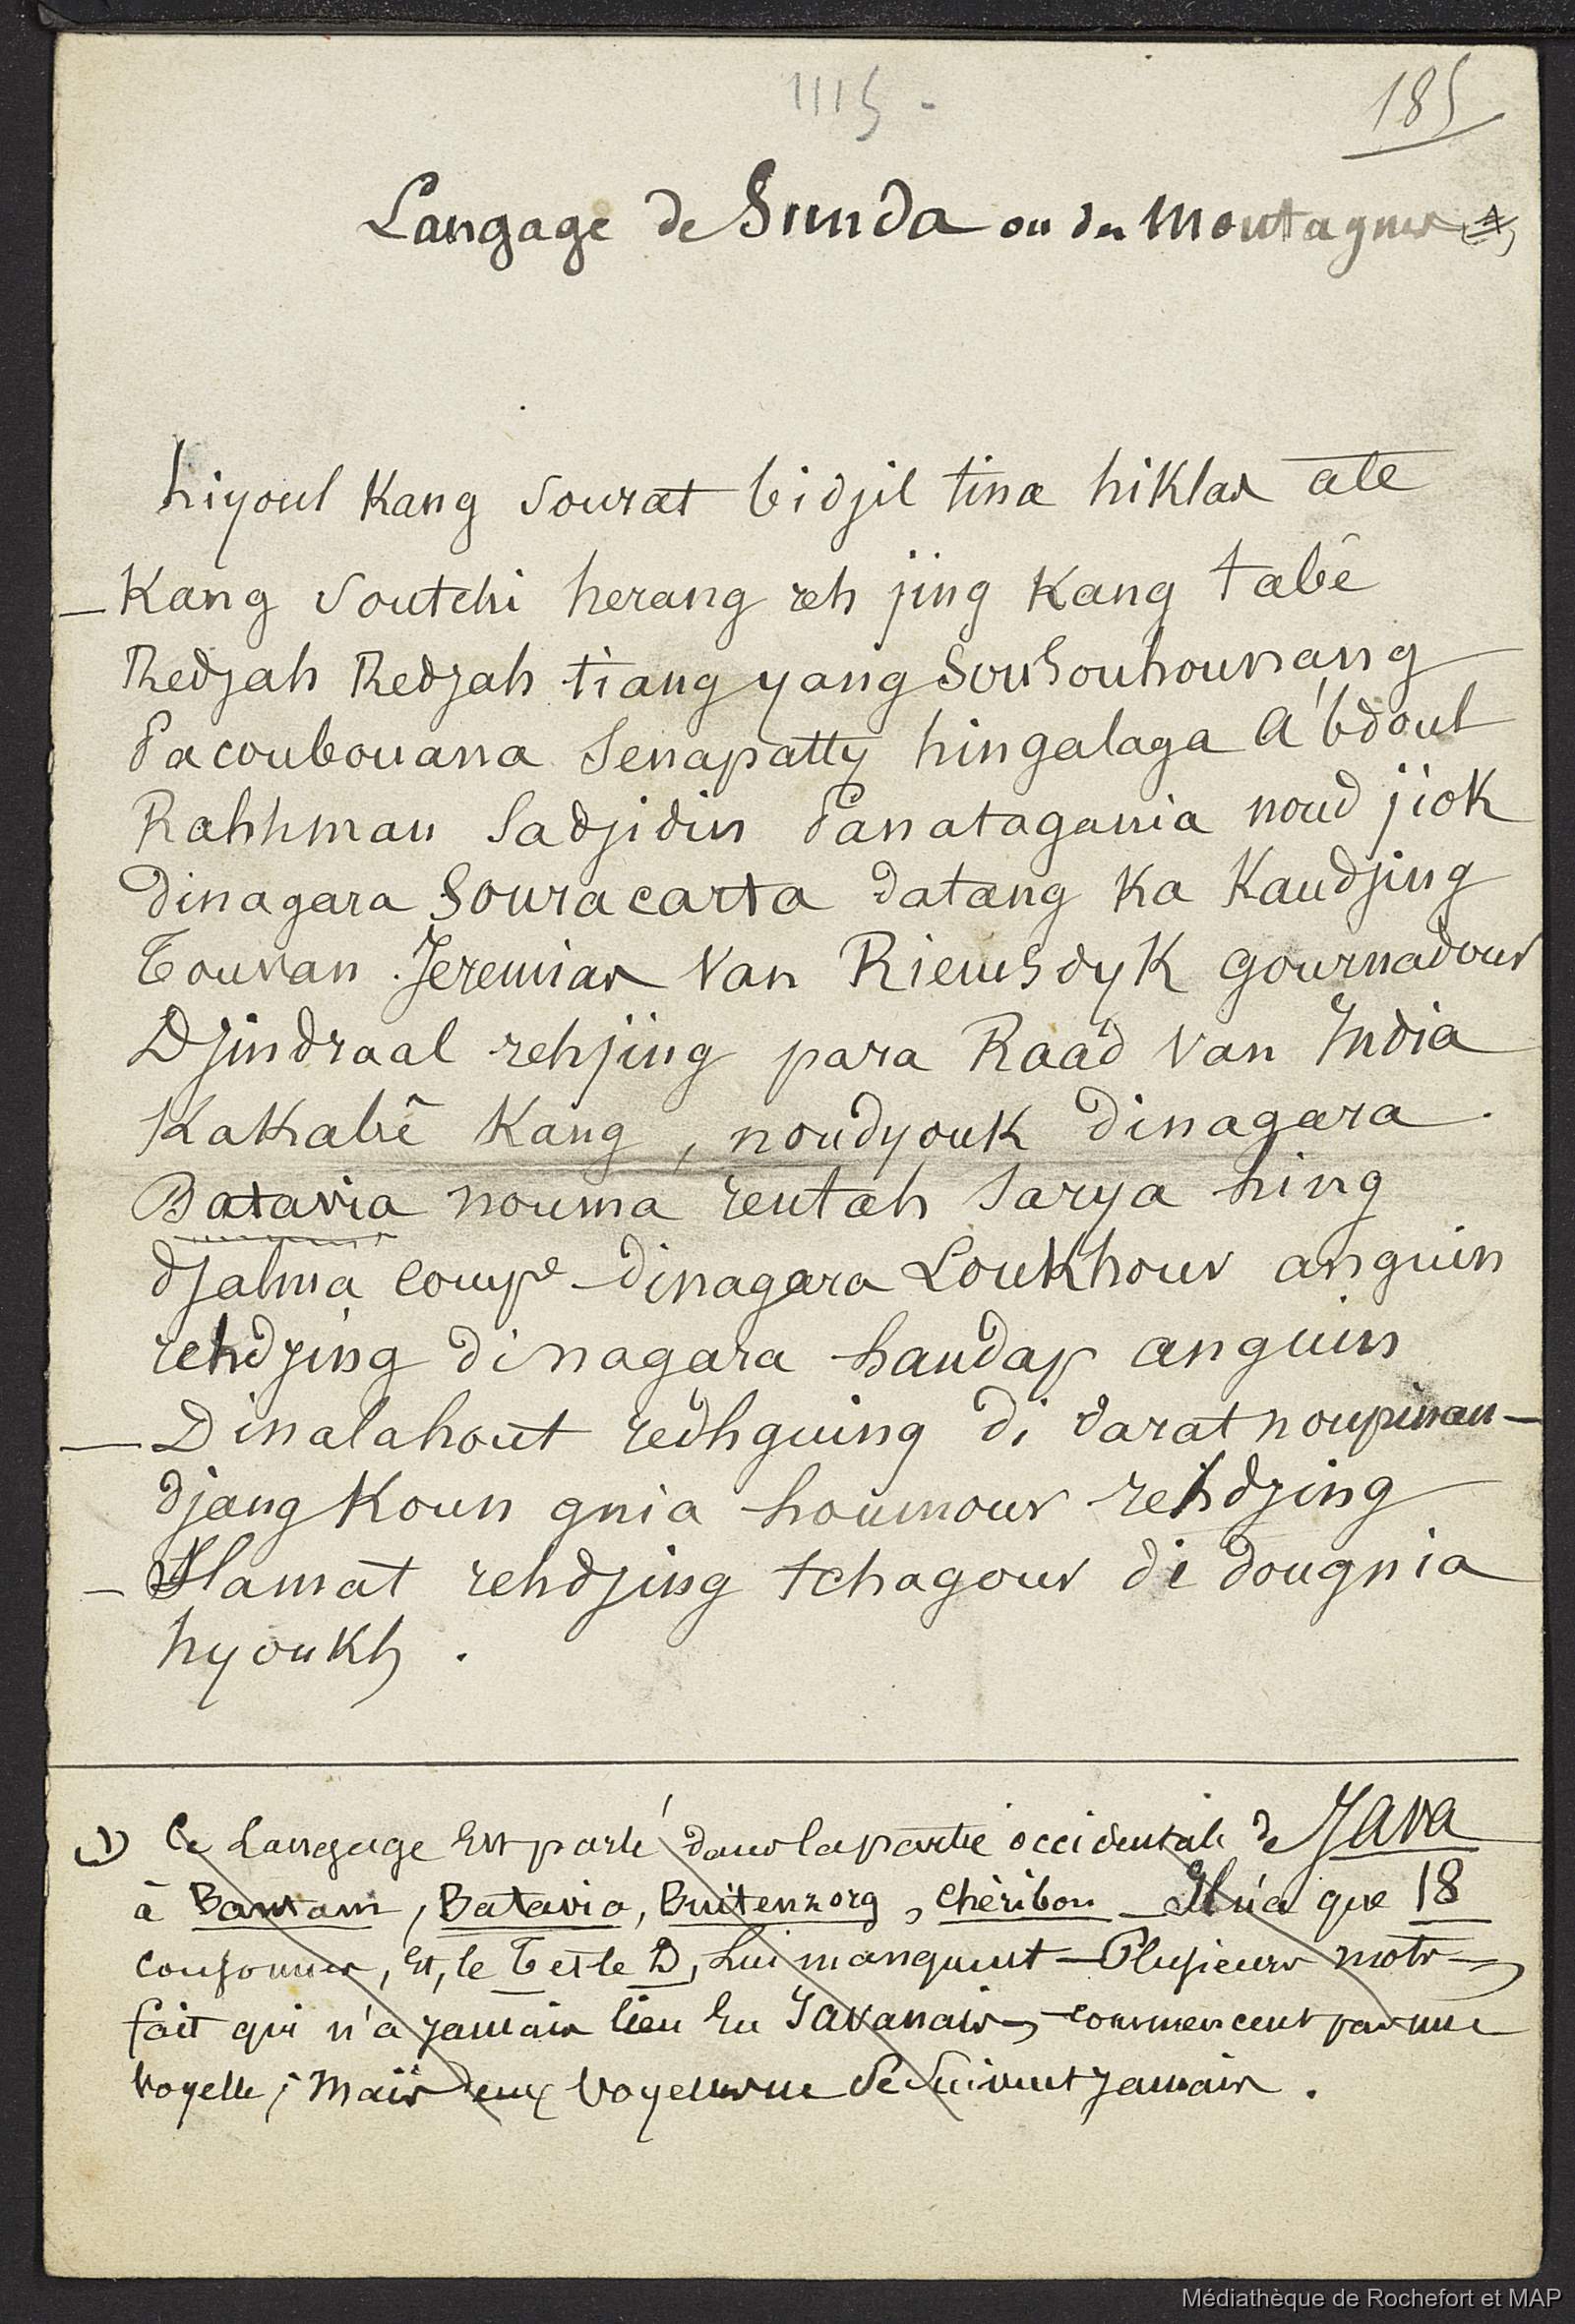 1115 -
185
Langage de Sunda ou des Montagnes
hiyoul Kang sourat bidjil tina hiklas ate
_ Kang soutchi herang reh jing Kang tabê
Redjah Redjah tiang yang Sousouhounang
Pacoubouana Senapatty hingalaga Abdoul
Rahhman Sadjidin Panatagania noud jiok
dinagara Souracarta datang ka Kandjing
Touvan Jeremias Van Riemsdyk gournadour
Djindraal rehjing para Raad Van India
Kakabê Kang, noudyouk dinagara
Batavia nouma rentah sarya hing
djalma comp° dinagara Loukhour anguin
rehdjing dinagara handap anguin
_ Dinalahout redhguing di darat noupinan-
djang Koun gnia houmour rehdjing
_ Slamat rehdjing tchagour di dougnia
hyoukh .
1) Ce Langage est parlé dans la partie occidentale de Java
à Bantam, Batavia, Buitenzorg, Chèribon _ Il n'a que 18
consonnes, et, le T et le D, lui manquent — Plusieurs mots —
fait qui n'a jamais lieu en Javanais, commencent par une
voyelle ; Mais deux voyelles ne se suivent jamais .
Médiathèque de Rochefort et MAP